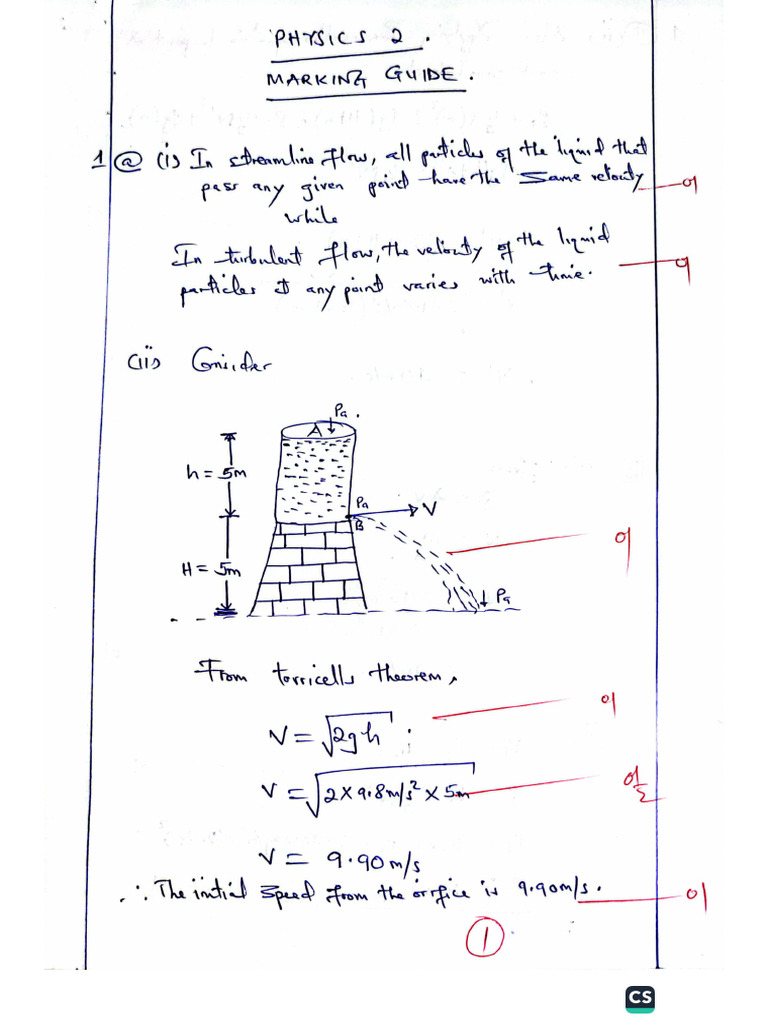 PHYSICS 2.
MARKING GUIDE.
1 (a) (i) In streamline flow, all particles of the liquid that
pass any given point have the same velocity
01
while
In turbulent flow, the velocity of the liquid
particles at any point varies with time.
01
(ii) Consider
Pa.
A
h = 5m
Pa
V
B
01
H = 5m
Pa
From torricells theorem,
01
V = √2gh ;
V = √2 × 9.8m/s² × 5m
01/2
V = 9.90m/s
∴ The initial speed from the orifice is 9.90m/s.
01
1
CS